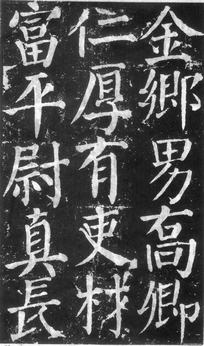 金鄉男䯧卿
仁厚有吏材
富平尉真長